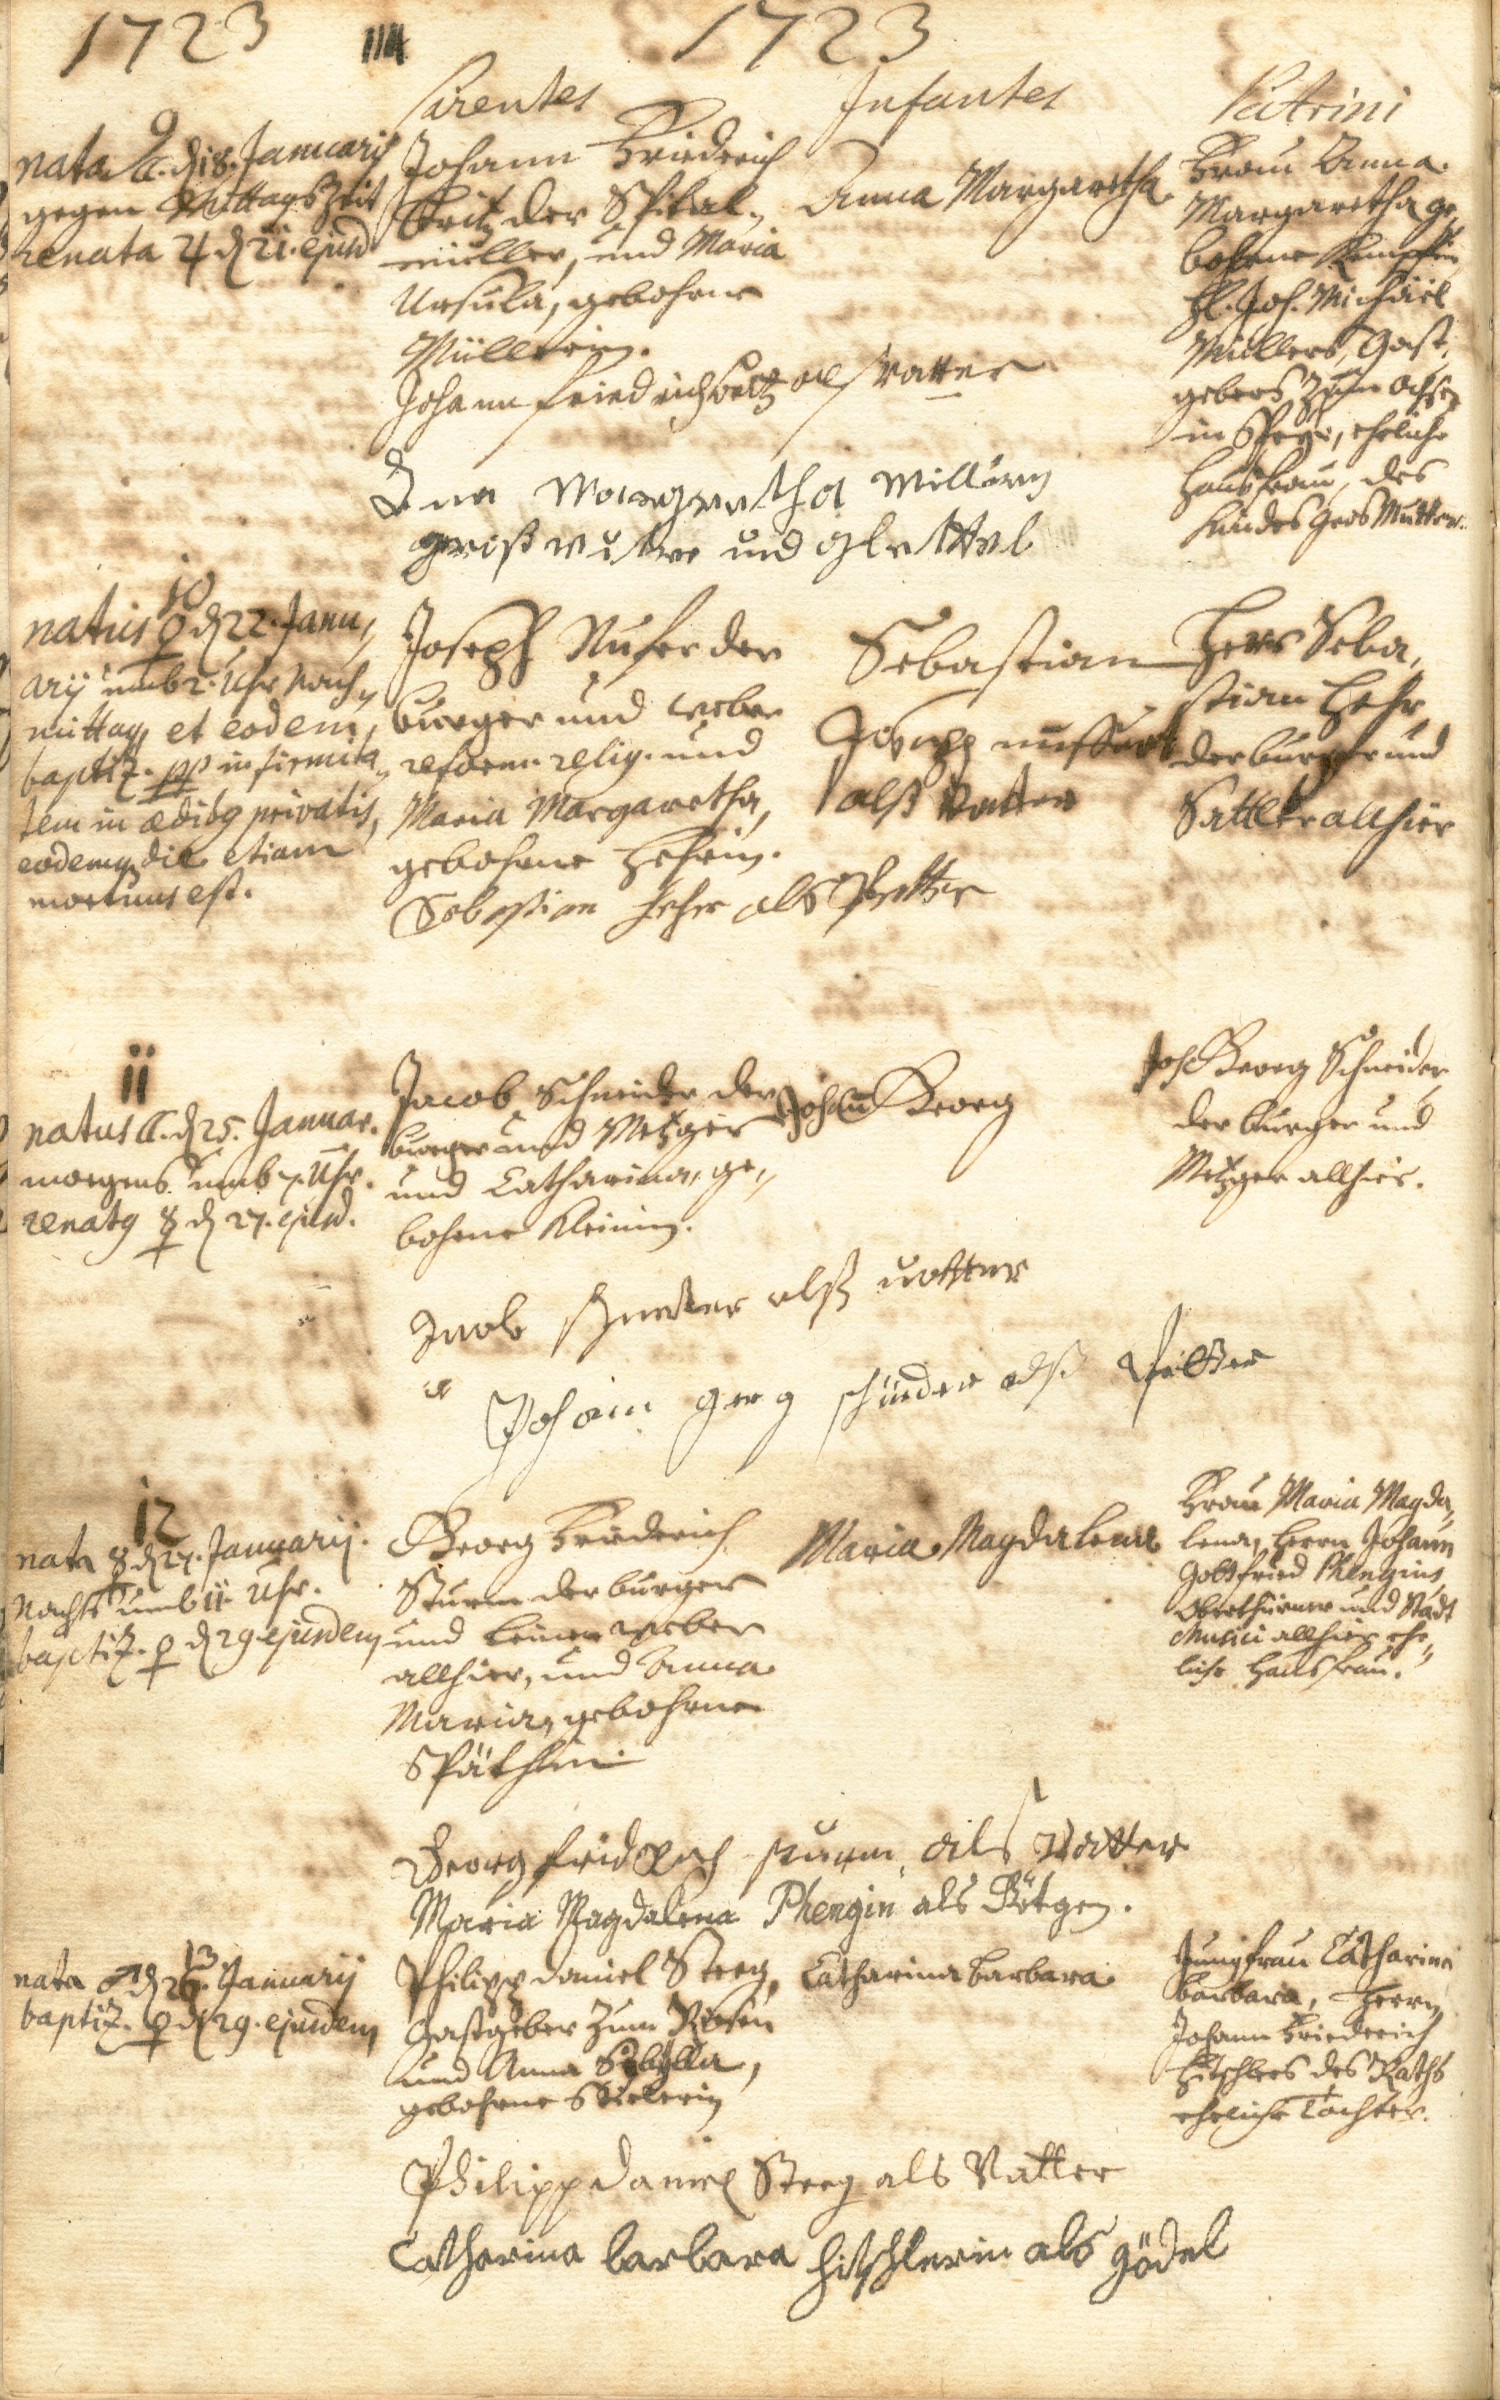 1723
1723
Parentes
Infantes
Patrini
9
nata ☾. d 18. Januarij
gegen Mittagszeit
renata ♃ d 21. ejusd
Johann Friederich
Beitz der Spital-
müller, und Maria
Ursula, gebohrne
Müllerin.
Anna Margaretha
Frau Anna
Margaretha ge-
bohrne
H. Joh. Michael
Müllers, Gast-
gebers zum Ochsen
in Speyer, ehliche
Haussfrau, des
Kindes Gros Mutter.
Johann friedrich beitz als vatter
Margretha Millerin
und
10
natus ♀ d 22. Janu-
arij umb 2. Uhr nach-
mittag, et eodem
baptiz. pp infirmita-
tem in ædibq privatis,
eodemq die etiam
mortuus est.
Joseph Nufer der
burger und weber
reform. relig. und
Maria Margaretha,
gebohrne Hehrin.
Sebastian
Joseph nuffer
alß vatter
Herr Seba-
stian Hehr
der burger und
Sattler allhier
Sebastian Hehr als Petter
11
natus ☾. d 25. Januar.
morgens umb 7. Uhr.
renatq ☿ d 27. ejusd.
Jacob Schneider der
burger und Metzger
und Catharina, ge-
bohrne Kleinin.
Johann Georg
Joh. Georg Schneider
der burger und
Metzger allhier.
alß vatter
Johann gerg schneider alß Petter
12
nata ☿ d 27. Januarij.
Nachts umb 11 Uhr.
baptiz. ♀ d 29. ejusdem
Georg Friederich
Sturm der burger
und Leinen weber
allhier, und Anna
Maria, gebohrne
Späthin
Maria Magdalena
Frau Maria Magda-
lena, Herrn Johann
Gottfried Phengius
Oberthürner und Stadt
Musici allhier ehe-
liche Hausfrau.
Georg fridrich sturm als Vatter
Maria Magdalena Phengin als Götgen.
13
nata ♂ d 26. Januarij
baptiz. ♀ d 29. ejusdem
Philipp Daniel Steeg,
Gastgeber zum Riesen
und Anna Sibylla,
gebohrne
Catharina Barbara
Jungfrau Catharina
Barbara, Herrn
Johann Friederich
Hitschlers des Raths
eheliche Tochter.
Philipp daniel Steeg als Vatter
Catharina barbara hitschlerin als gödel